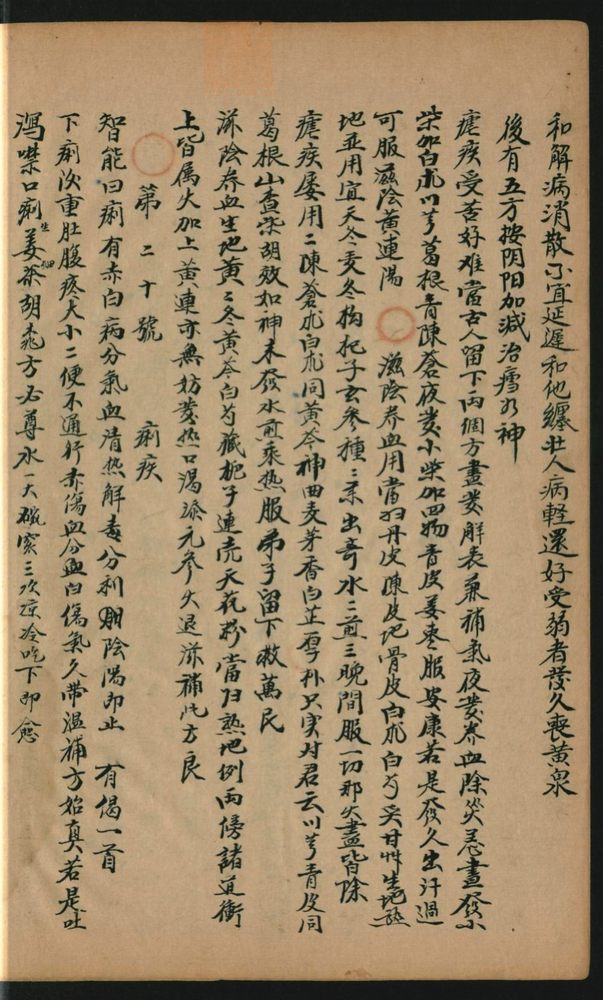 和解病消散不宜延遲和他纏壮人病軽還好受弱者發久喪黄泉
後有五方按阴阳加減治瘧如神
瘧疾受苦好难當古人留下两個方晝發解表兼補氣夜發养血除災恙晝發小
柴加白朮川芎葛根青陳蒼夜發小柴加四物青皮姜枣服安康若是發久出汗過
可服滋陰黄連湯 滋陰养血用當归丹皮陳皮地骨皮白朮白芍炙甘艸生地熟
地並用宜天冬麦冬枸杞子玄参種〻柔出奇水二煎三晚間服一切邪火盡皆除
瘧疾屡用二陳蒼朮白朮同黄芩神曲麦芽香白芷厚朴只実对君云川芎青皮同
葛根山查柴胡效如神未發水煎乘热服弟子留下救萬民
滋陰养血生地黄二冬黄芩白芍藏栀子連壳天花粉當归熟地例两傍諸道衝
上皆属火加上黄連亦無妨發热口渴添元参火退滋補此方良
第二十號 痢疾
智能曰痢有赤白病分氣血清热解毒分利陰陽即止 有偈一首
下痢次重肚腹疼大小二便不通行赤傷血分血白傷氣久带温補方始真若是吐
瀉噤口痢生姜細茶胡桃方必尊水一大碗煎三次凉冷吃下即愈